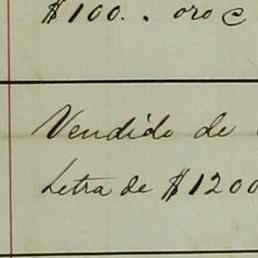 $100. . oro c
Vendido de
Letra de $1200